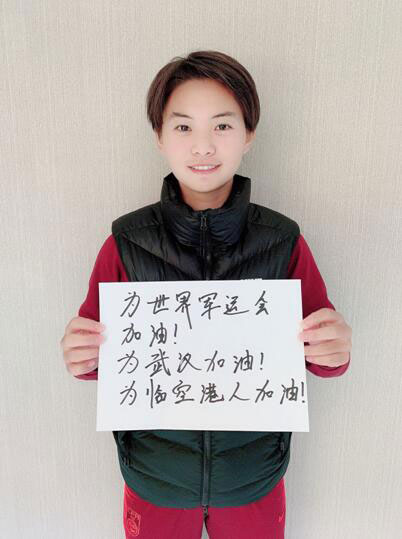 为世界军运会
加油!
为武汉加油!
为临空港人加油!